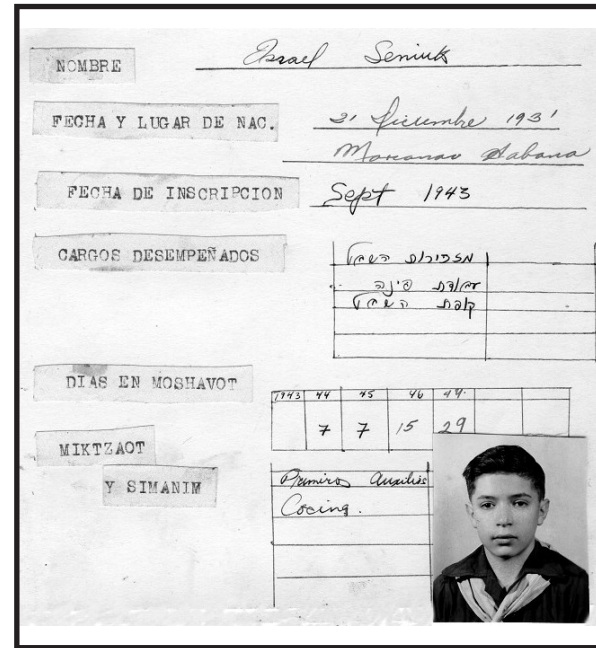 NOMBRE Israel Seniuk
FECHA Y LUGAR DE NAC. 21 Diciembre 1931
Marianao Habana
FECHA DE INSCRIPCION Sept 1943
CARGOS DESEMPEÑADOS
מזכירות השבט
עבודת פינה
קופת השבט
DIAS EN MOSHAVOT
1943 44 45 46 49.
7 7 15 29
MIKTZAOT
Y SIMANIM
Primiros Auxilios
Cocina.